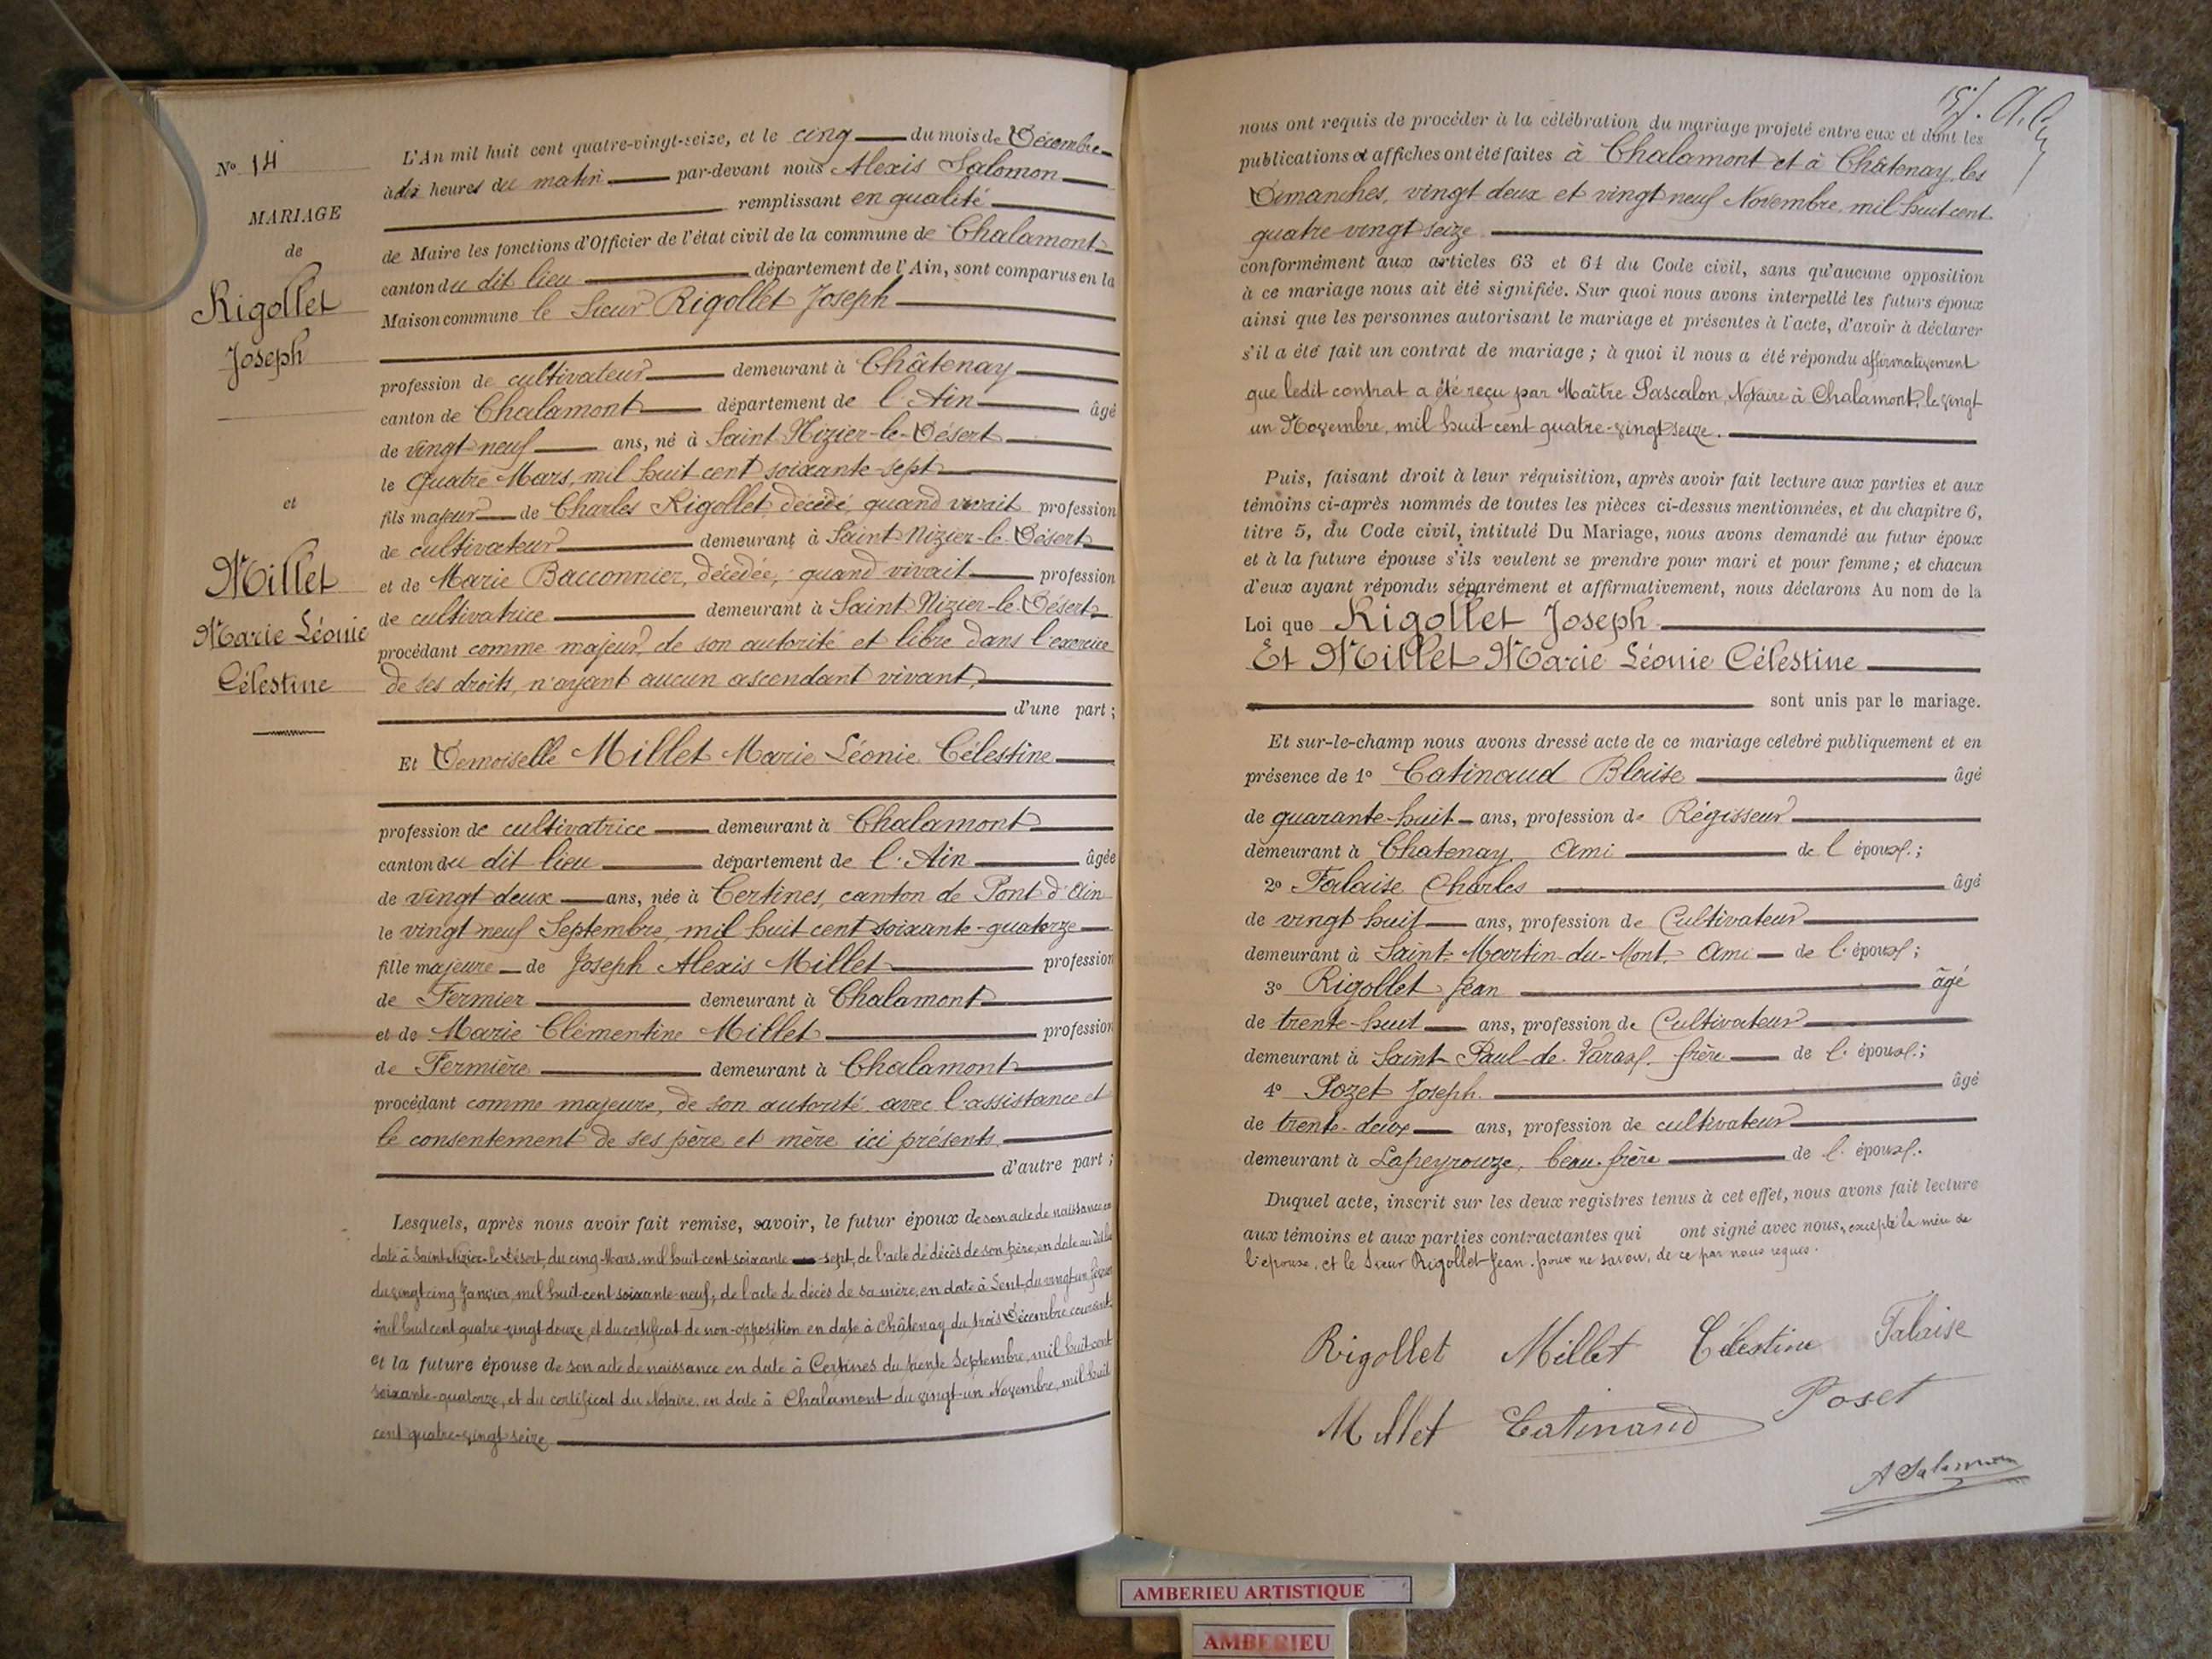 N° 14
MARIAGE
de
Rigollet
Joseph
et
Millet
Marie Léonie
Célestine
L'An mil huit cent quatre-vingt-seize, et le cinq du mois de Décembre
à dix heures du matin par-devant nous Alexis Salomon
remplissant en qualité
de Maire les fonctions d'Officier de l'état civil de la commune de Chalamont
canton du dit lieu département de l'Ain, sont comparus en la
Maison commune le Sieur Rigollet Joseph
profession de cultivateur demeurant à Châtenay
canton de Chalamont département de l'Ain âgé
de vingt neuf ans, né à Saint Nizier-le-Désert
le quatre Mars, mil huit cent soixante-sept
fils majeur de Charles Rigollet, décédé, quand vivait profession
de cultivateur demeurant à Saint-Nizier-le-Désert
et de Marie Bacconnier, décédée, quand vivait profession
de cultivatrice demeurant à Saint Nizier-le-Désert
procédant comme majeur, de son autorité et libre dans l'exercice
de ses droits, n'ayant aucun ascendant vivant,
d'une part;
Et Demoiselle Millet Marie Léonie Célestine
profession de cultivatrice demeurant à Chalamont
canton du dit lieu département de l'Ain âgée
de vingt deux ans, née à Certines, canton de Pont d'Ain
le vingt neuf Septembre, mil huit cent soixante-quatorze
fille majeure de Joseph Alexis Millet profession
de Fermier demeurant à Chalamont
et de Marie Clémentine Millet profession
de Fermière demeurant à Chalamont
procédant comme majeure, de son autorité avec l'assistance et
le consentement de ses père et mère ici présents.
d'autre part;
Lesquels, après nous avoir fait remise, savoir, le futur époux de son acte de naissance en
date à Saint-Nizier-le-Désert, du cinq Mars, mil huit cent soixante sept, de l'acte de décès de son père, en date au dit lieu
du vingt cinq Janvier, mil huit-cent soixante-neuf; de l'acte de décès de sa mère, en date à Lent, du vingt-un Février
mil huit cent quatre-vingt douze, et du certificat de non-opposition en date à Châtenay du trois Décembre courant
et la future épouse de son acte de naissance en date à Certines du trente Septembre, mil huit cent
soixante-quatorze, et du certificat du Notaire, en date à Chalamont du vingt-un Novembre, mil huit
cent quatre-vingt seize
nous ont requis de procéder à la célébration du mariage projeté entre eux et dont les
publications et affiches ont été faites à Chalamont et à Châtenay, les
Dimanches, vingt deux et vingt neuf Novembre, mil huit cent
quatre-vingt seize
conformément aux articles 63 et 64 du Code civil, sans qu'aucune opposition
à ce mariage nous ait été signifiée. Sur quoi nous avons interpellé les futurs époux
ainsi que les personnes autorisant le mariage et présentes à l'acte, d'avoir à déclarer
s'il a été fait un contrat de mariage; à quoi il nous a été répondu affirmativement
que ledit contrat a été reçu par Maître Pascalon, Notaire à Chalamont, le vingt
un Novembre, mil huit cent quatre-vingt seize.
Puis, faisant droit à leur réquisition, après avoir fait lecture aux parties et aux
témoins ci-après nommés de toutes les pièces ci-dessus mentionnées, et du chapitre 6,
titre 5, du Code civil, intitulé Du Mariage, nous avons demandé au futur époux
et à la future épouse s'ils veulent se prendre pour mari et pour femme; et chacun
d'eux ayant répondu séparément et affirmativement, nous déclarons Au nom de la
Loi que Rigollet Joseph
Et Millet Marie Léonie Célestine
sont unis par le mariage.
Et sur-le-champ nous avons dressé acte de ce mariage célébré publiquement et en
présence de 1° Catinaud Blaise âgé
de quarante-huit ans, profession de Régisseur
demeurant à Chatenay, Ami de l'époux;
2° Falaise Charles âgé
de vingt huit ans, profession de Cultivateur
demeurant à Saint-Martin-du-Mont, Ami de l'époux;
3° Rigollet Jean âgé
de trente-huit ans, profession de Cultivateur
demeurant à Saint-Paul-de-Varax, frère de l'époux;
4° Pozet Joseph. âgé
de trente-deux ans, profession de cultivateur
demeurant à Lapeyrouze, beau-frère de l'époux.
Duquel acte, inscrit sur les deux registres tenus à cet effet, nous avons fait lecture
aux témoins et aux parties contractantes qui ont signé avec nous, excepté la mère de
l'épouse, et le Sieur Rigollet Jean, pour ne savoir, de ce par nous requis.
Rigollet Millet Célestine Falaise
Millet Catinaud Poset
A Salomon
AMBERIEU ARTISTIQUE
AMBERIEU